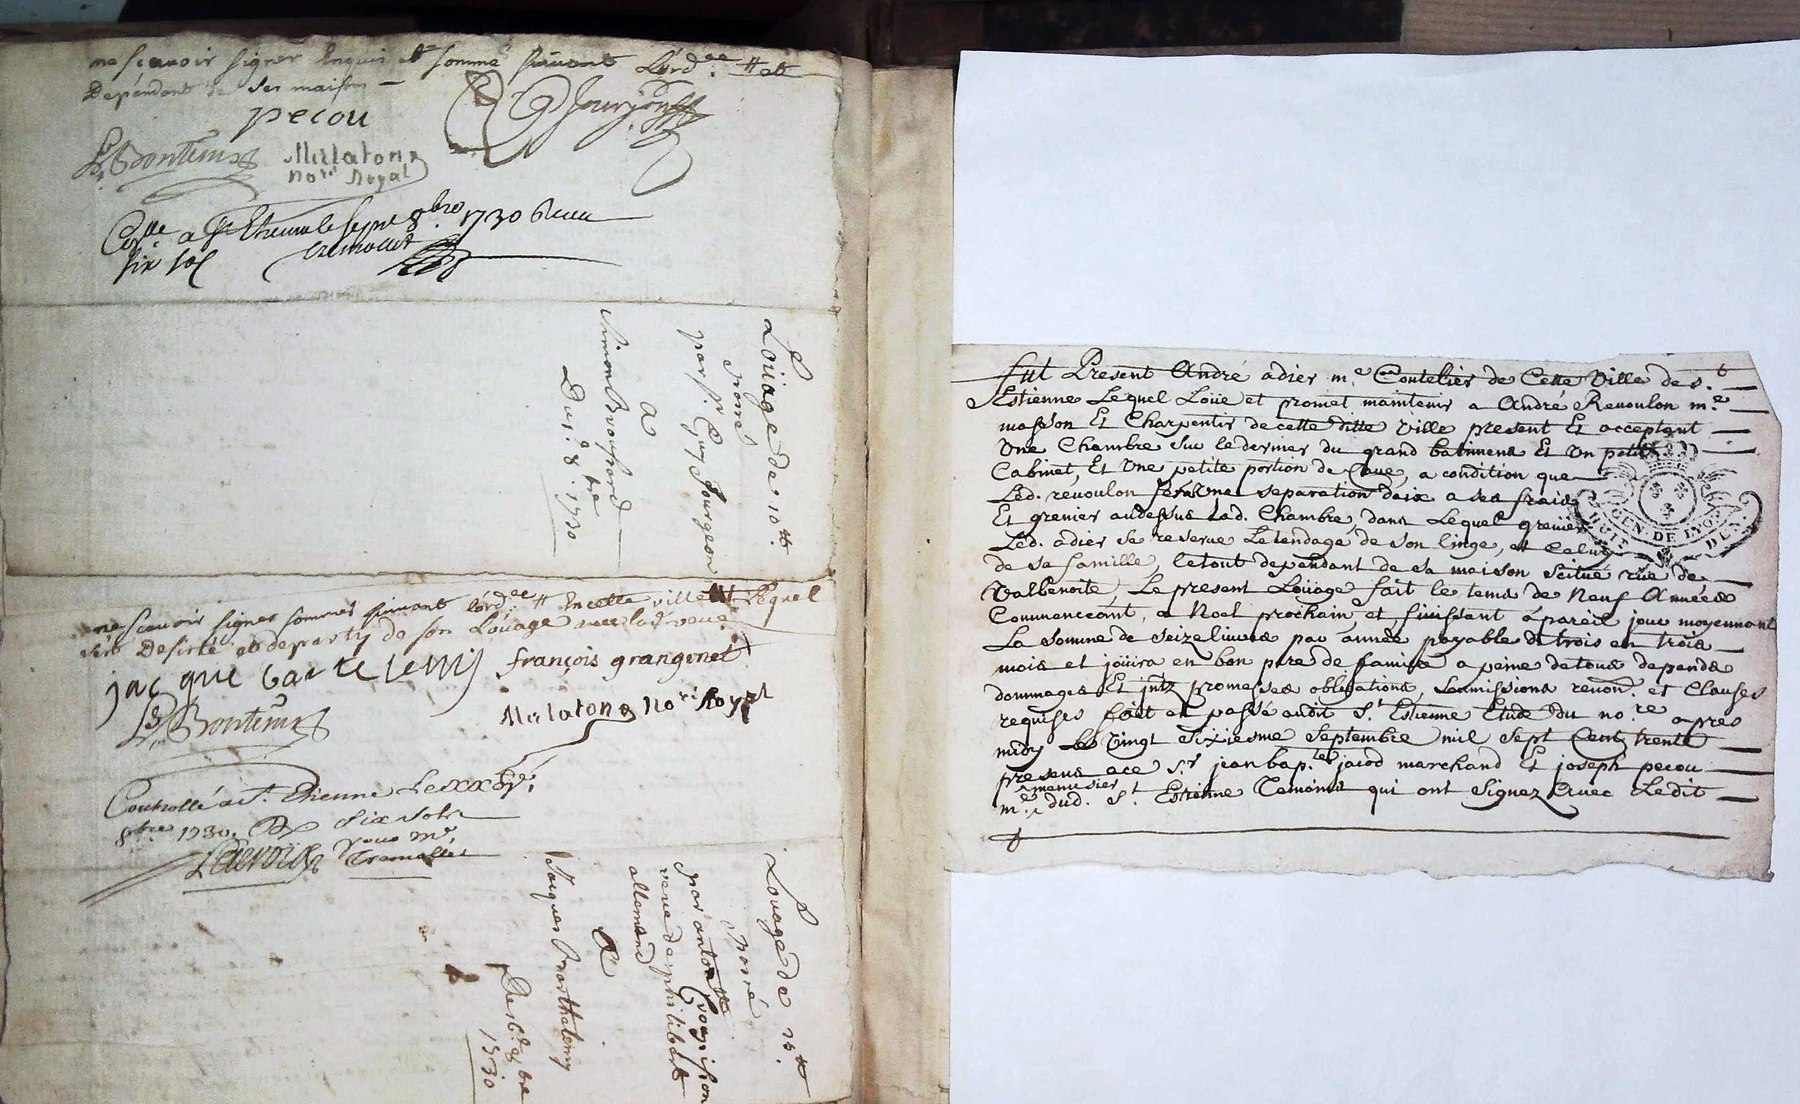 ne scavoir signer Enquis et sommé suivant L'ord.ee # et
Dépendant de ses maison
pecou
Jourjon
Bontems
Malaton
No.re Royal
Con.lle a St Etienne le sept 8.bre 1730 Recu
six sols
tremollet
Loüage de 10.tt
par s.r Guy Jourgeon
a
Simon Brossard
Du 1.r 8.bre
1730
ne scavoir signer sommes suivant l'ord.ee # En cette ville et Lequel
sera Desisté et departy de son Loüage avec lad. veuve
jacque bartelemy françois grangenet
Bontems
Malaton No.re Royal
Controllé a St. Etienne Le xxbe.
8.bre 1730. R six sols
pour Mr.
tremollet
Louage de 15.tt
par antoinette
veuve de philibert
allemand
A
Jacques Barthelemy
8.bre
1730
fut Present André adier m.e Coutelier de Cette Ville de s.t
Estienne Lequel Loüe et promet maintenir a André Revoulon m.e
masson Et Charpentir de cette ditte Ville present Et acceptant
Une Chambre sur le dernier du grand batiment Et un petit
Cabinet, Et Une petite portion de Cave, a condition que
Led. revoulon fera Une separation a ses fraix
Et grenier audessus Lad. Chambre, dans Lequel grenier
Led. adier se reserve Le tendage de son linge, et Celuy
de sa famille, le tout dependant de sa maison scituée rüe de
Valbenoite, Le present Loüage fait le tems de Neuf Années
Commenceant, a Noel prochain et finissant a pareil jour moyennant
La somme de seize livres par année payable de trois en trois
mois et joüira en bon pere de famille a peine de tous depends
dommages Et jntz promesses obligations, soumissions renon.on et Clauses
requises fait et passé audit S.t Estienne Etude du no.re apres
midy Le Vingt sixiesme septembre mil sept Cent trente
presens a ce s.r jean bap.te jacod marchand Et joseph pecou
m.e menuisier dud. S.t Estienne Temoins qui ont signez avec Ledit
GEN. DE LYON
HUIT DEN.